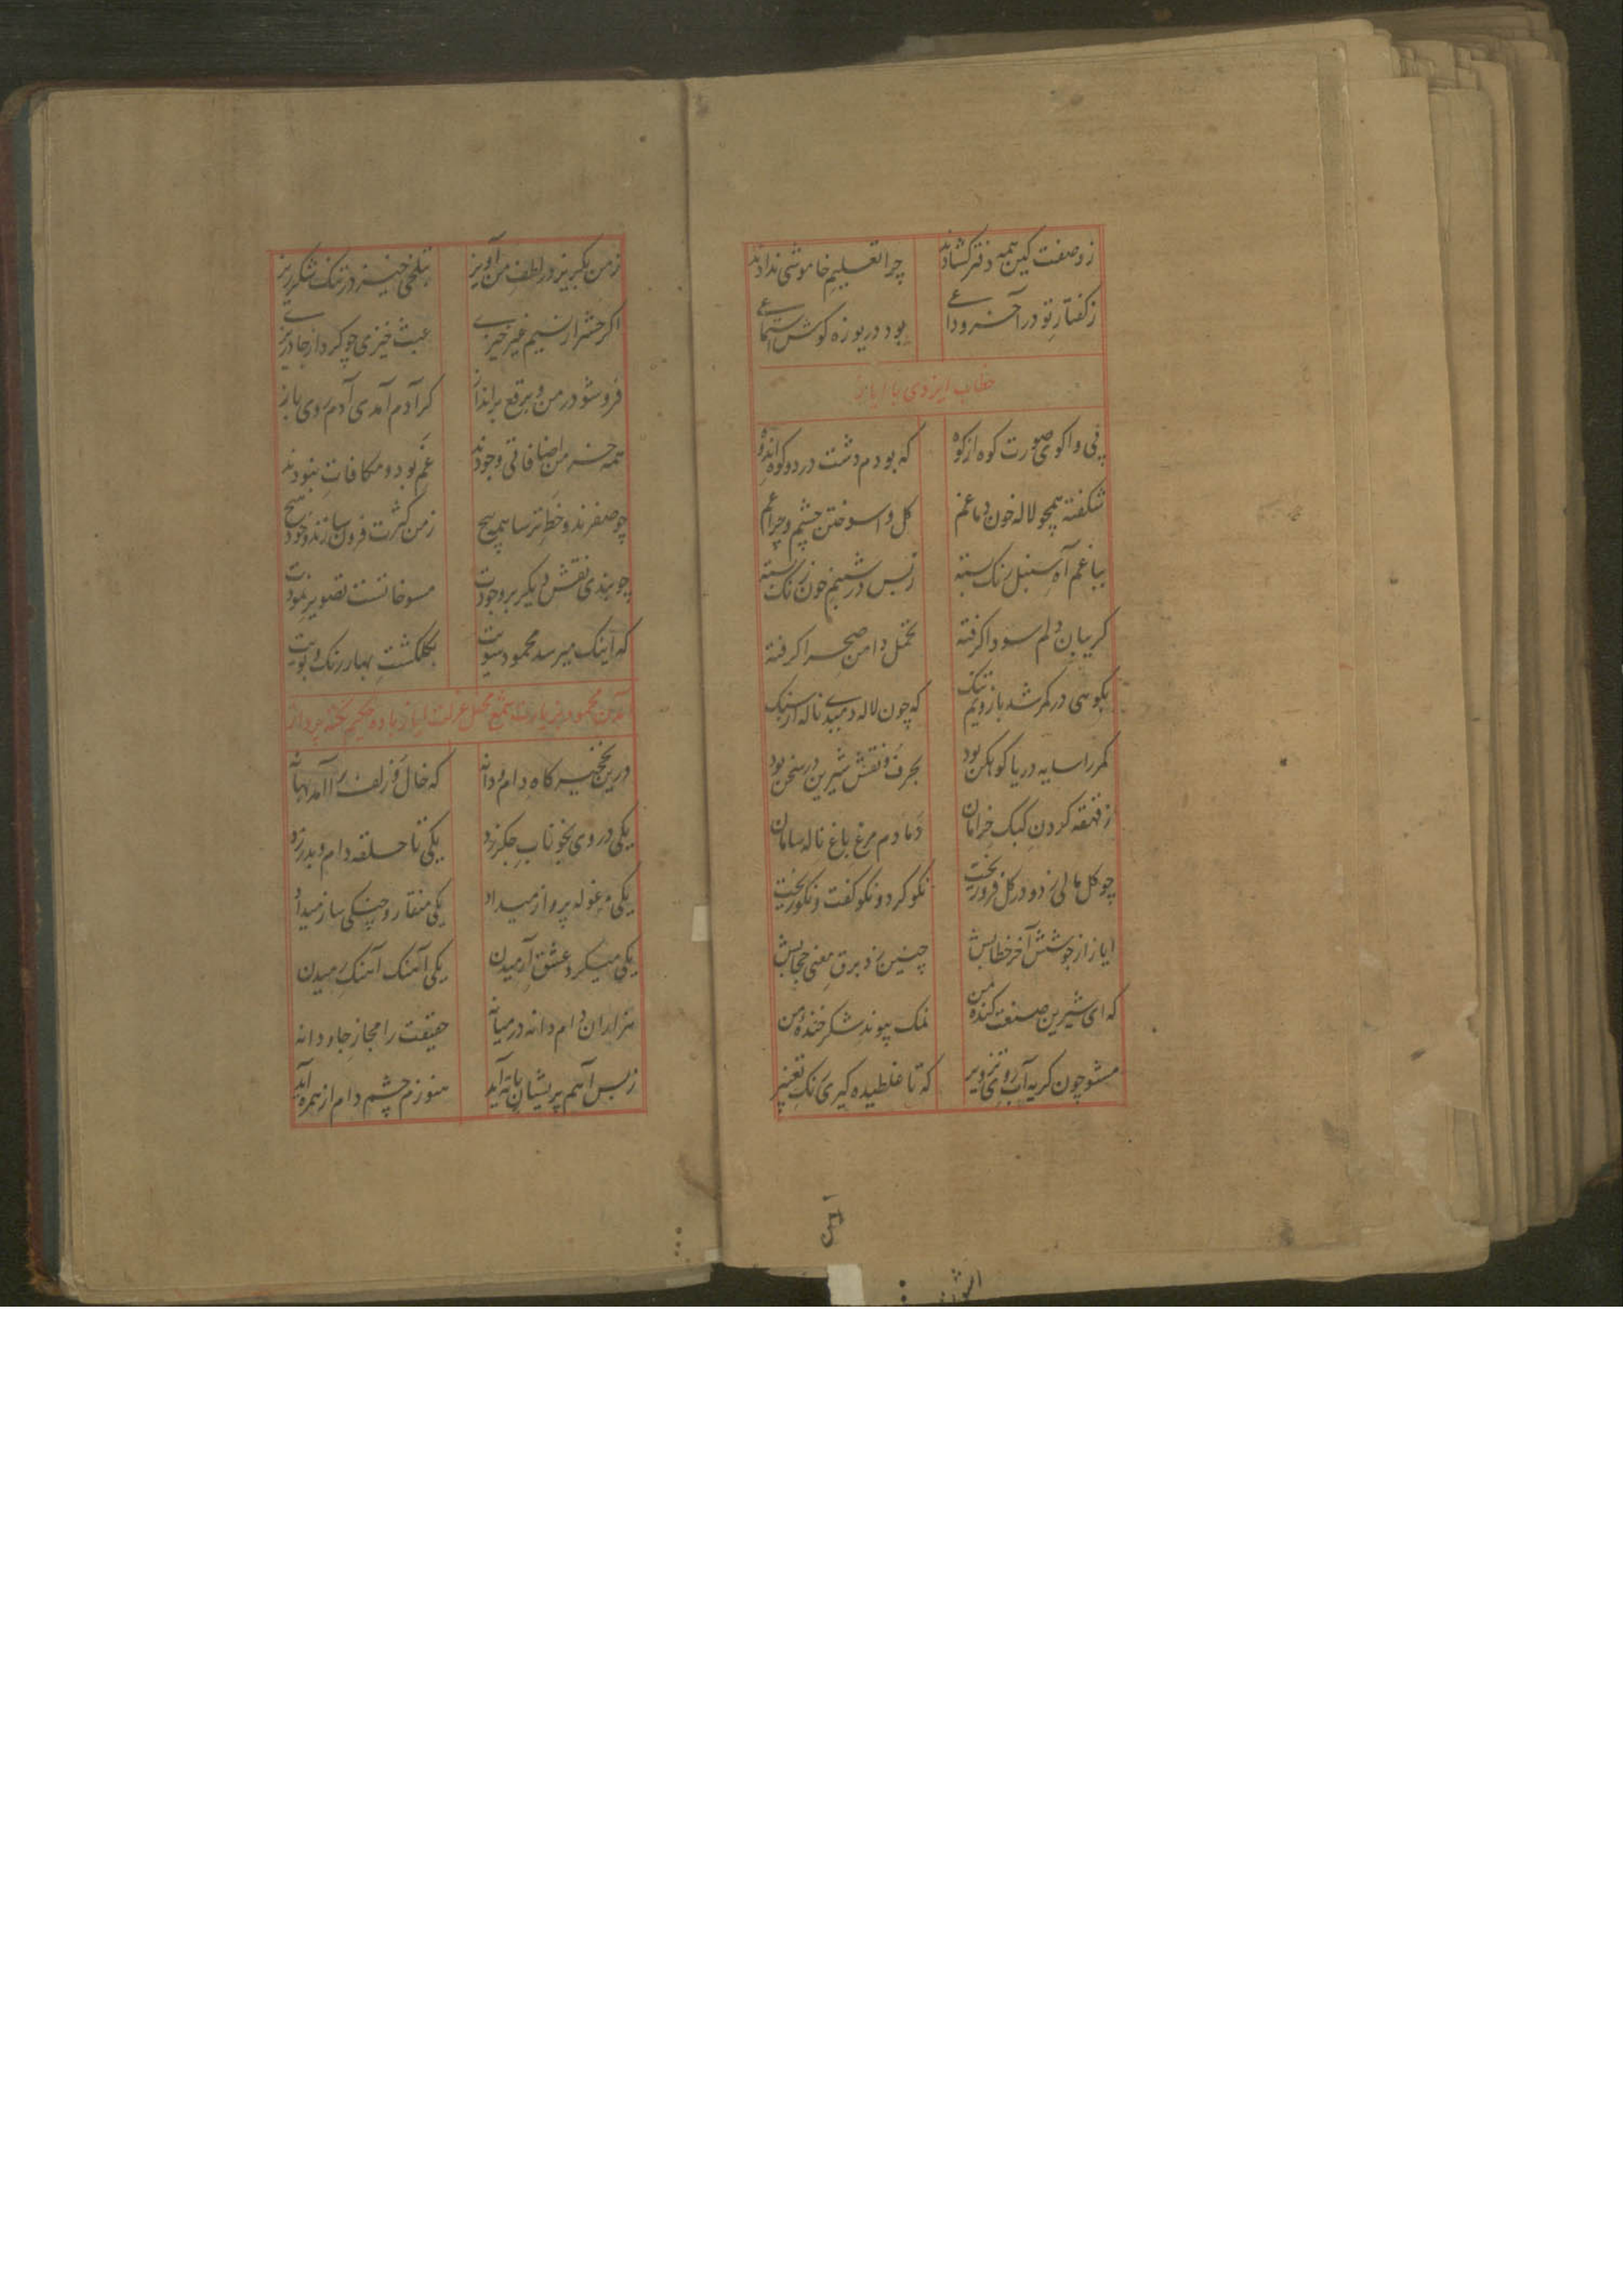 ز وصفت کین همه دفتر کشادند چرا تعلیم خاموشی ندادند
ز کفتار تو در آخر وداعی بود دریوزه کوش استماعی
خطاب ایزدی با ایاز
پی واکوی صورت کوه از کوه که بودم دشت در دو کوه اندوه
شکفته همچو لاله خون دماغم کل واسوختن چشم و چراغم
بباغم آه سنبل رنک بسته ز بس در شبنم خون رنک بسته
کریبان دلم سودا کرفته تحمل دامن صحرا کرفته
بکوهی در کمر شد بازویم تنک که چون لاله دمیدی ناله از سنک
کمر را سایه دریا کوهکن بود بحرف و نقش شیرین در سخن بود
ز قهقه کردن کبک خرامان دمادم مرغ باغ ناله سامان
چو کل مالی زد و در کل فرو ریخت نکو کرد و نکو کفت و نکو ریخت
ایاز از جوشش آخر خطابش چنین زد برق معنی حجابش
که ای شیرین صنعت کنده من نمک پیوند شکر خنده من
مشو چون کریه آب روی تزویر که تا غلطیده کیری رنک تغییر
ز من بکریز و در لطف من آویز بتلخی خیز در تنک شکر ریز
اکر حشر از نسیم غیر خیزی عبث خیزی چو کرد از جا دریزی
فرو شو در من و برقع برانداز کر آدم آمدی آدم روی باز
همه جز من اضافاتی وجودند غم بود و مکافات نبودند
چو صفرند و خط ترسا همه هیچ ز من کثرت فروسازند و خود هیچ
چو بندی نقش دیکر بر وجودت مسوخانست تصویر نمودت
که اینک میرسد محمود سویت بکلکشت بهار رنک و بویت
آمدن محمود بزیارت شمع محفل عزلت ایاز و باده حکیم نکته پرداز
درین نخچیر کاه دام و دانه که خال و زلف را آمد بهانه
یکی در روی بخوناب جکر زد یکی تا حلقه دام و بدر زد
یکی مرغوله پرواز میداد یکی منقار و چنکی ساز میداد
یکی میکرد عشق آرمیدن یکی آهنک آهنک رمیدن
هزاران دام و دانه در میانه حقیقت را مجاز جاودانه
ز بس آهم پریشان باته آید هنوزم چشم دام از همره آید